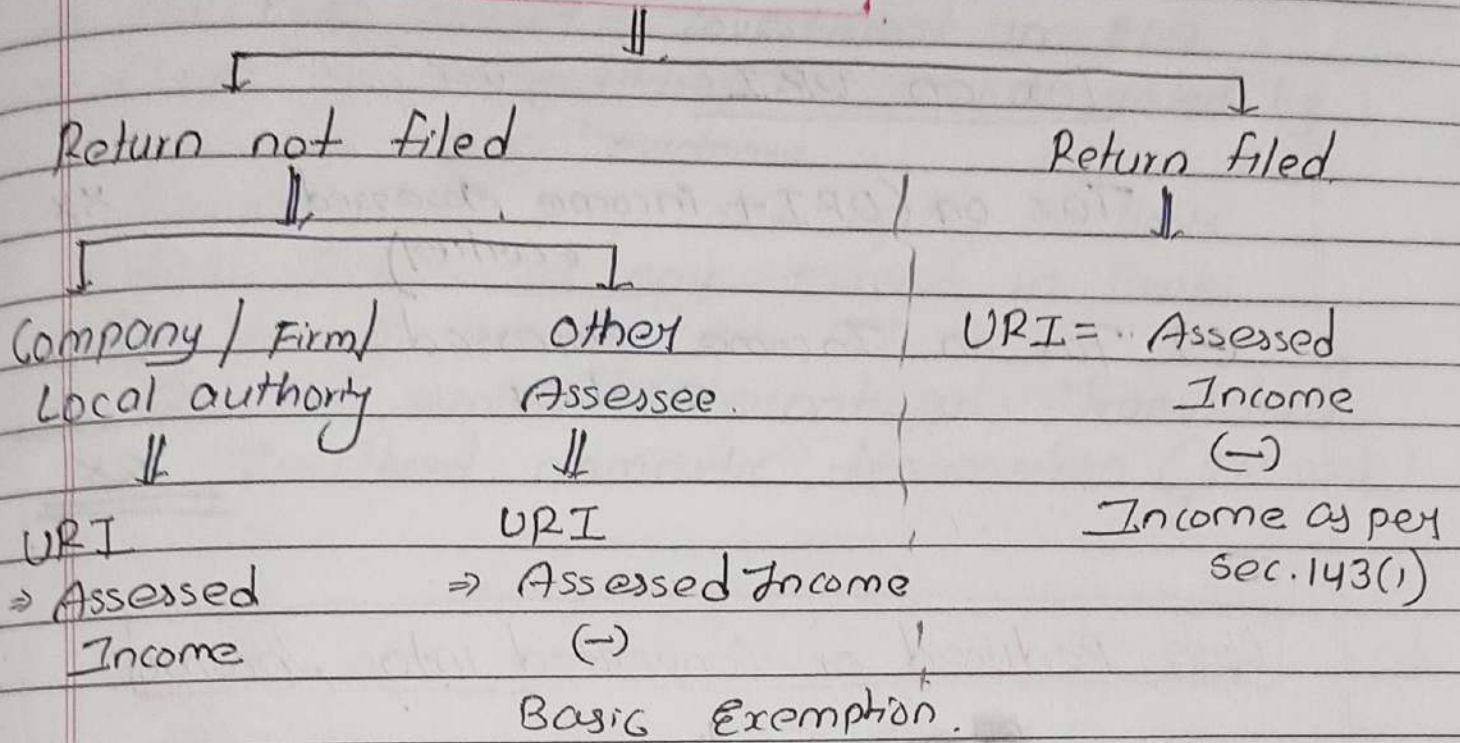 Return not filed
Return filed.
Company / Firm/
Local authority
Other
Assessee.
URI = Assessed
Income
(-)
Income as per
Sec. 143(1)
URI
⇒ Assessed
Income
URI
⇒ Assessed Income
(-)
Basic Exemption.